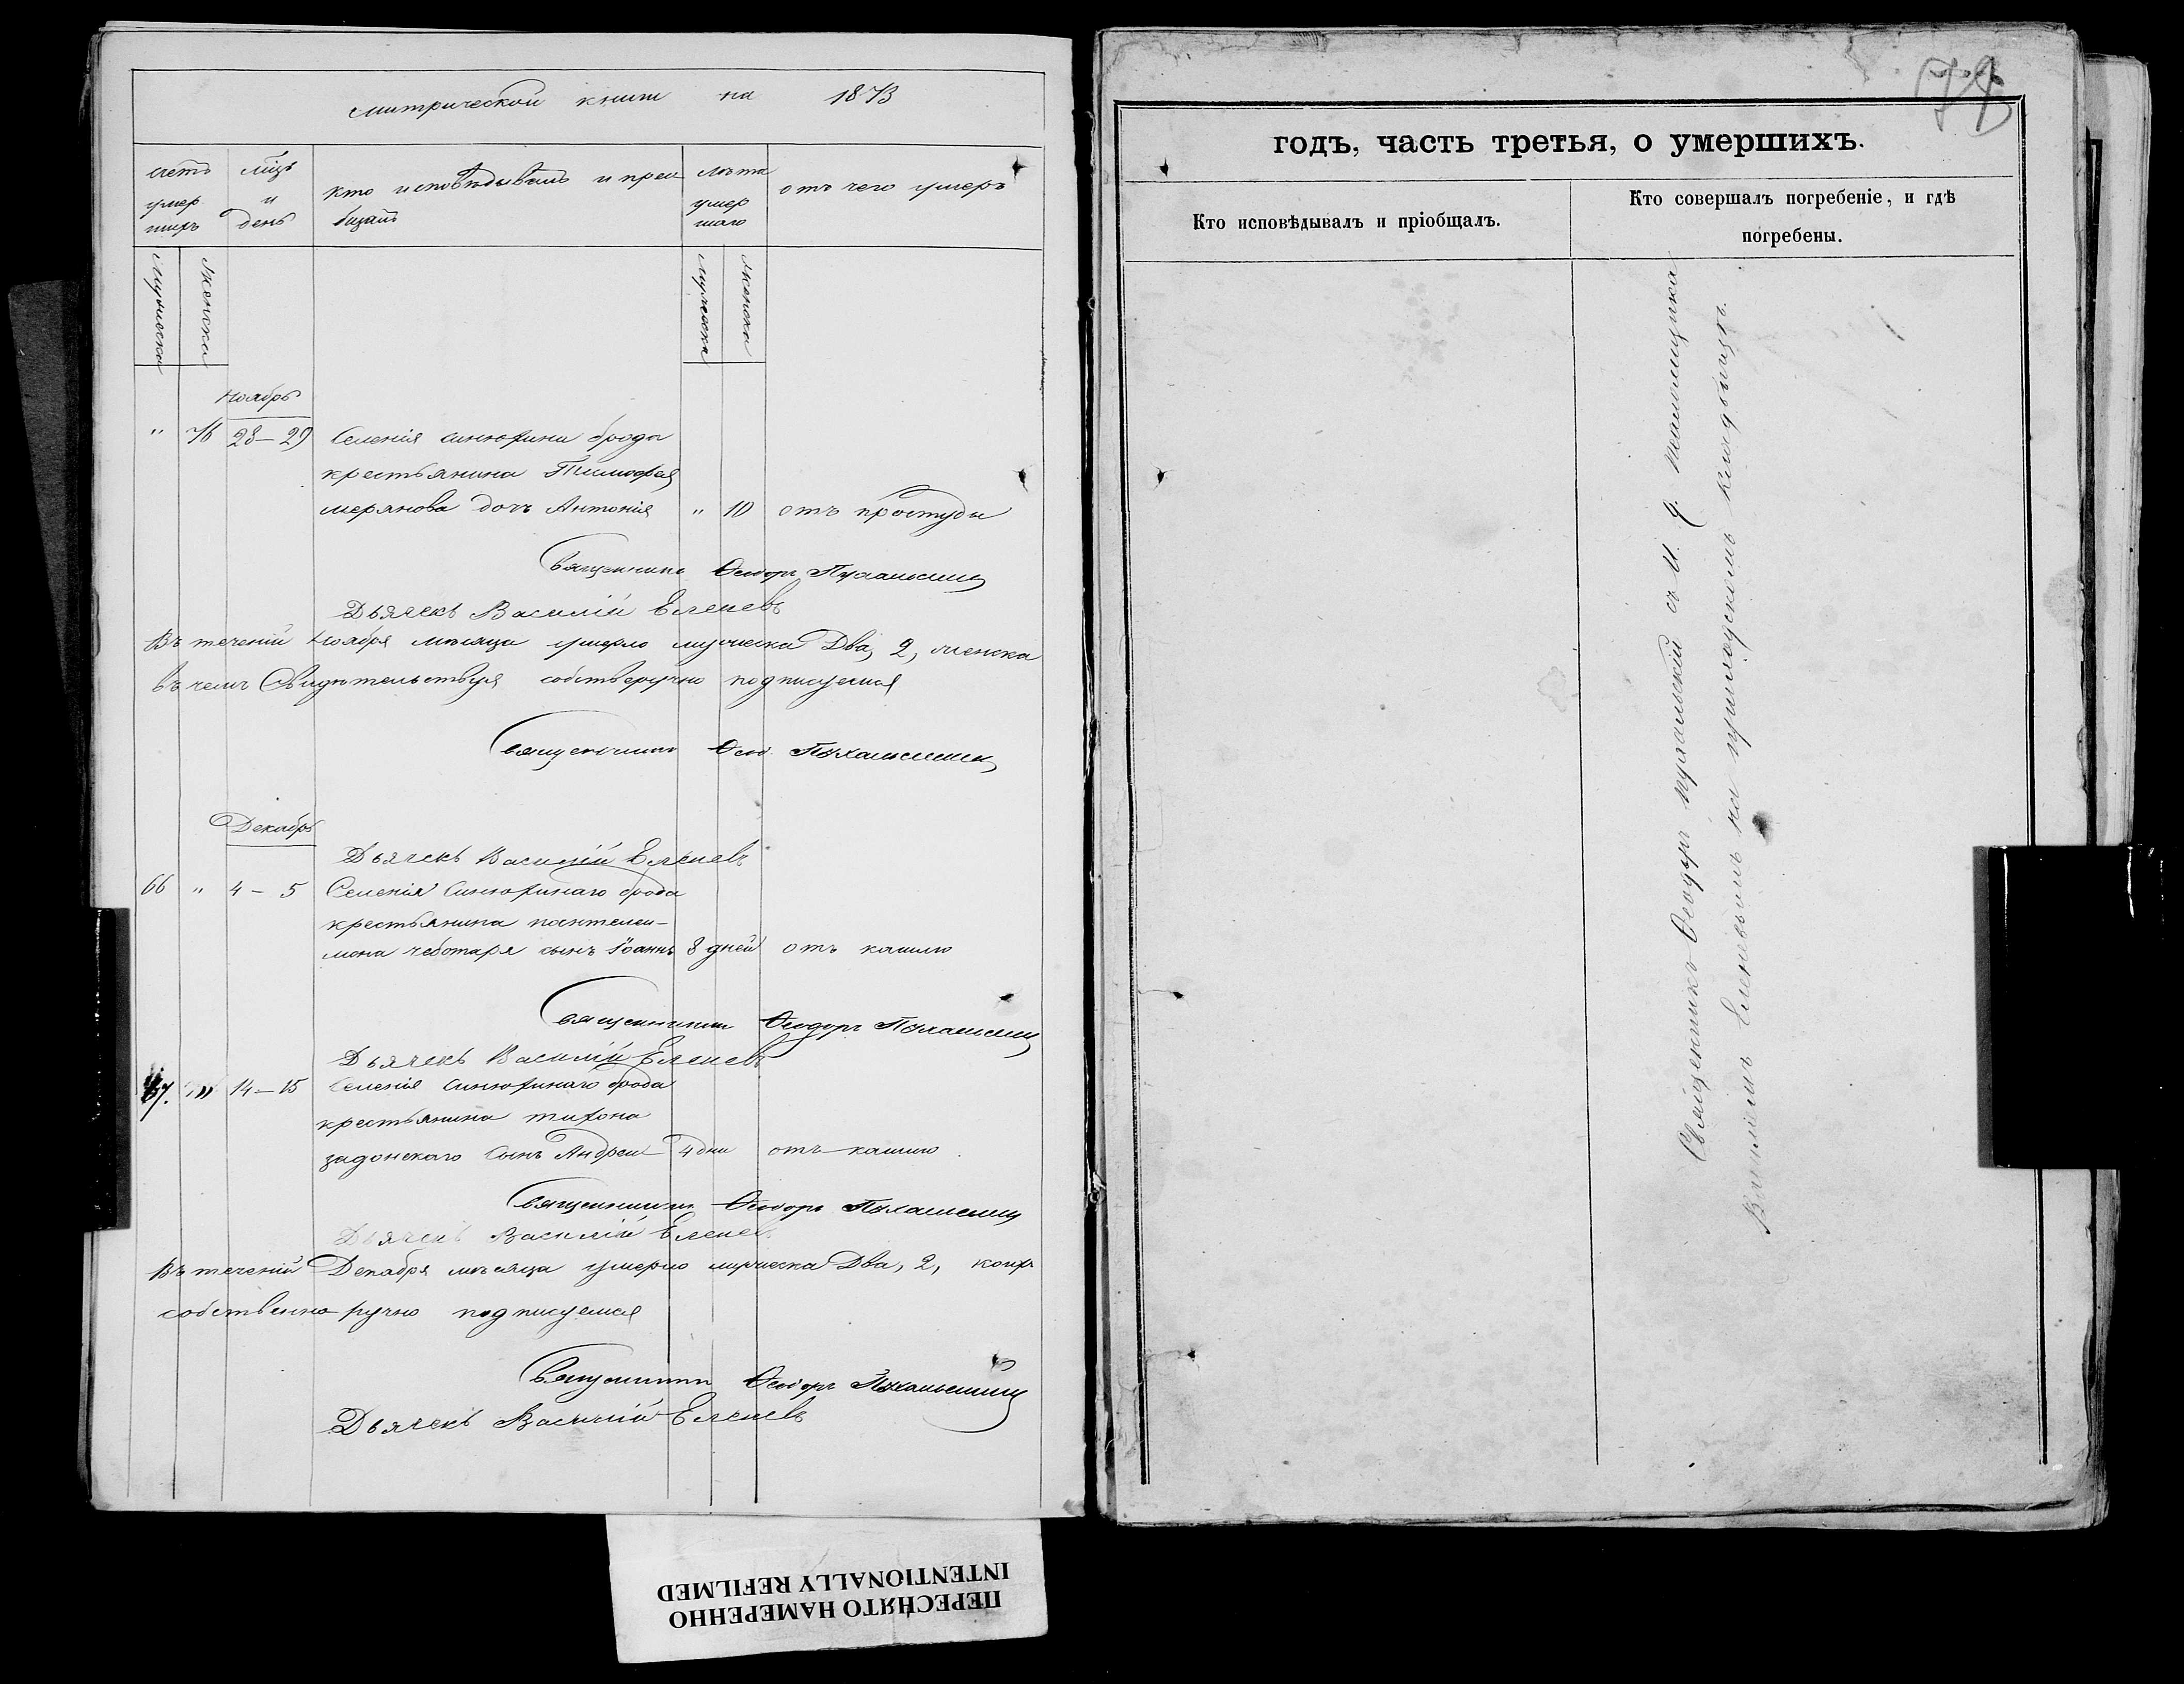 митрической книги на 1873
счетъ
умер
шихъ
мцъ
и
день
кто исповѣдывалъ и
лѣта
умер
шаго
отъ чего умеръ
мужеска
женска
мужеска
женска
Ноябрь
" 76 28–29 Селенія синюхина брода
крестьянина Тимофея
мерянова дочь Антонія " 10 отъ простуды
Священникъ Ѳеодоръ
Дьячекъ Василій Еленевъ
Въ теченіи Ноября мѣсяца умерло мужеска Два, 2, женска
въ чемъ Свидѣтельствуя собстверучно подписуемся
Священникъ Ѳеод.
Декабрь
Дьячекъ Василій Еленевъ
66 " 4 – 5 Селенія Синюхинаго брода
крестьянина пантелеи-
мона чеботаря сынъ Іоаннъ 8 дней отъ кашлю
Священникъ Ѳеодоръ
Дьячекъ Василій Еленевъ
67. " 14–15 Селенія Синюхинаго брода
крестьянина тихона
задонскаго Сынъ Андрей 4 дни отъ кашлю
Священникъ Ѳеодоръ
Дьячекъ Василій Еленев
Въ теченіи Декабря мѣсяца умерло мужеска Два, 2,
собственно ручно подписуемся
Священникъ Ѳеодоръ
Дьячекъ Василій Еленевъ
годъ, часть третья, о умершихъ.
Кто исповѣдывалъ и пріобщалъ.
Кто совершалъ погребеніе, и гдѣ
погребены.
Священникъ Ѳеодоръ съ И. д.
Василіемъ Еленевымъ на приходскомъ кладбищѣ.
ПЕРЕСНЯТО НАМЕРЕННО
INTENTIONALLY REFILMED